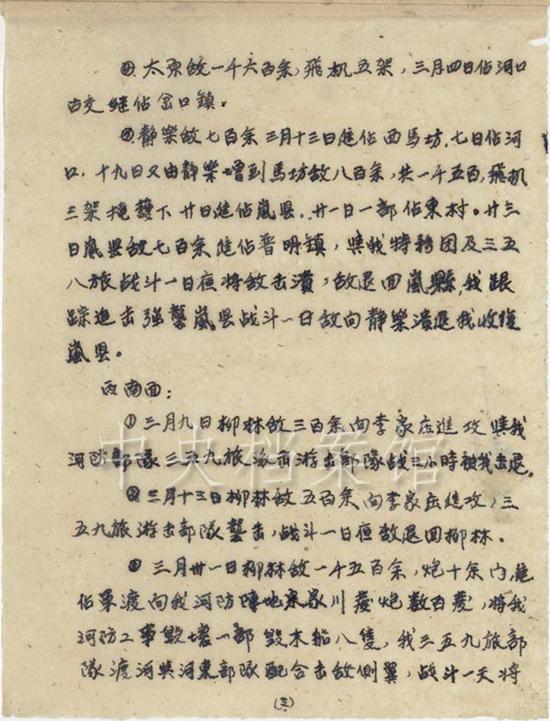 ④太原敌一千六百余,飛机五架,三月四日佔河口
古交继佔岔口鎮。
⑤静樂敌七百余三月十三日進佔西馬坊,七日佔河
口,十九日又由静樂增到馬坊敌八百余,共一千五百,飛机
三架掩護下廿日進佔嵐县,廿一日一部佔東村。廿三
日嵐县敌七百余進佔普明鎮,與我特務团及三五
八旅战斗一日夜将敌击潰,敌退回嵐縣,我跟
踪追击強襲嵐县战斗一日敌向静樂潰退我收復
嵐县。
西南面:
①三月九日柳林敌三百余向李家庄進攻與我
河防部隊三五九旅游击部隊战三小時被我击退。
②三月十三日柳林敌五百余向李家庄進攻,三
五九旅游击部隊襲击,战斗一日夜敌退回柳林。
③三月廿一日柳林敌一千五百余,炮十余门進
佔軍渡向我河防陣地宋家川發炮数百發,将我
河防工事毀壞一部毀木船八隻,我三五九旅部
隊渡河與河東部隊配合击敌側翼,战斗一天将
(三)
中央档案馆